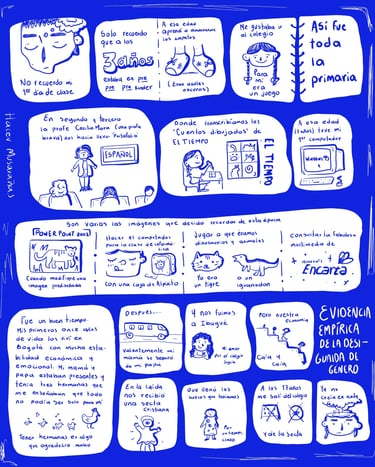 No recuerdo mi
1er día de clase
Solo recuerdo
que a los
3 años
estaba en pre
pre pre kinder
A esa edad
aprendí a amarrarme
los zapatos
(Eran varios
oscuros)
Me gustaba ir
al colegio
Para
mí
era
un juego
Así fue
toda
la
primaria
Hacer Musarañas
En segundo y tercero
la profe Cecilia María (una profe
brava) nos hacía llevar
ESPAÑOL
Donde transcribíamos los
"Cuentos dibujados" de
EL TIEMPO
EL TIEMPO
A esa edad
(7 años) tuve mi
1er computador
Windows 95
Son varias las imágenes que decido recordar de esta época
POWERPOINT 2003
Cuando modifiqué una
imagen prediseñada
Hacer el computador
para la clase de informá-
tica
con una caja de Alpinito
Jugar a que éramos
dinosaurios y animales
Yo era
un tigre
iguanodon
Consultar la fabulosa
multimedia de
Microsoft
Encarta
Fue un buen tiempo.
Mis primeros once años
de vida los viví en
Bogotá con mucha esta-
bilidad económica y
emocional. Mi mamá y
papá estaban presentes y
tenía tres hermanas que
me enseñaban que todo
no podía ser solo para mí
Tener hermanas es algo
que agradezco mucho
Después...
Valientemente mi
mamá se separó
de mi papá
Y nos fuimos
a Ibagué
Pero nuestra
economía
Caía y
caía
EVIDENCIA
EMPÍRICA
DE LA DESI-
GUALDAD DE
GÉNERO
En la caída
nos recibió
una secta
cristiana
Que llenó los
vacíos que teníamos
Por un
tiempo
A los 17 años
me salí del colegio
Y de la secta
Ya no
creía en nada